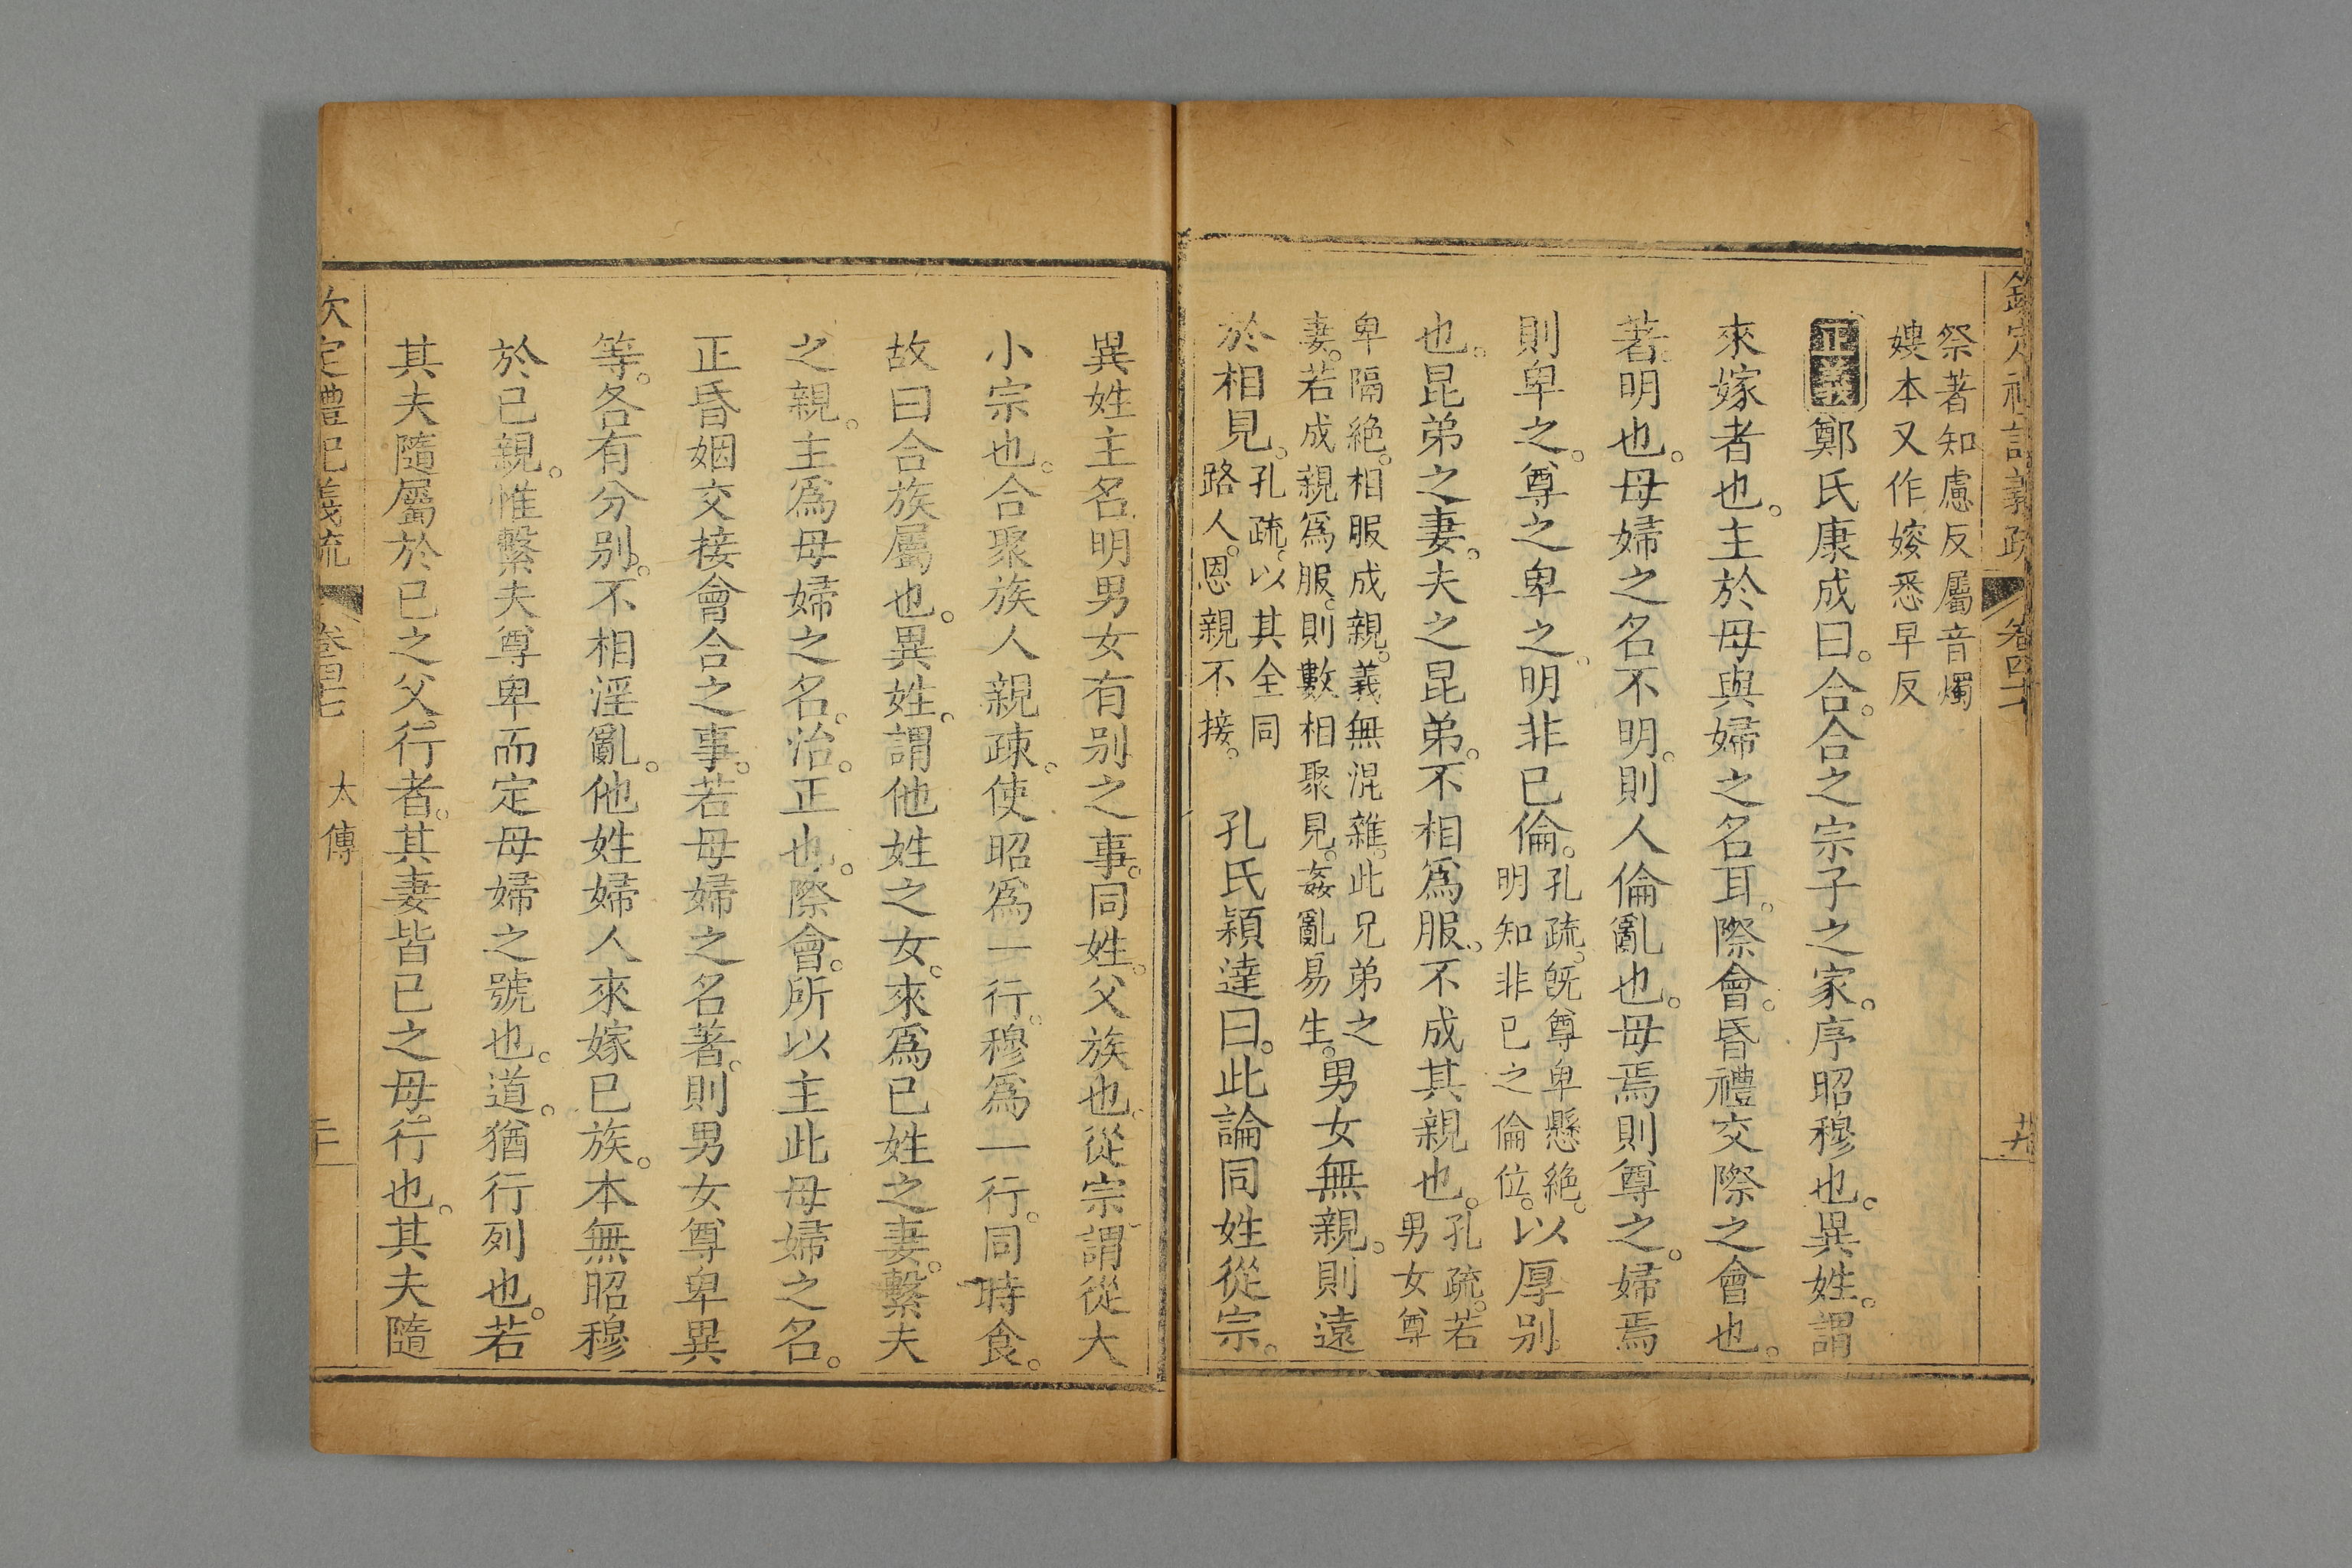 祭著知慮反屬音燭
嫂本又作㛮悉早反
正義鄭氏康成曰。合。合之宗子之家。序昭穆也。異姓。謂
來嫁者也。主於母與婦之名耳。際會。昏禮交際之會也。
著。明也。母婦之名不明。則人倫亂也。母焉則尊之。婦焉
則卑之。尊之卑之。明非已倫。
孔疏。既尊卑懸絶。
明知非已之倫位。
以厚别
也。昆弟之妻。夫之昆弟。不相爲服。不成其親也。
孔疏。若
男女尊
卑隔絶。相服成親。義無混雜。此兄弟之
妻。若成親爲服。則數相聚見。姦亂易生。
男女無親。則遠
於相見。
孔疏。以其全同
路人。恩親不接。
孔氏穎達曰。此論同姓從宗。
異姓主名。明男女有别之事。同姓。父族也。從宗。謂從大
小宗也。合聚族人親疎。使昭爲一行。穆爲一行。同時食。
故曰合族屬也。異姓。謂他姓之女。來爲已姓之妻。繫夫
之親。主爲母婦之名。治。正也。際會。所以主此母婦之名。
正昏姻交接會合之事。若母婦之名著。則男女尊卑異
等。各有分别。不相淫亂。他姓婦人來嫁已族。本無昭穆
於已親。惟繫夫尊卑而定母婦之號也。道。猶行列也。若
其夫隨屬於已之父行者。其妻皆已之母行也。其夫隨
欽定禮記義疏
卷四七
大傳